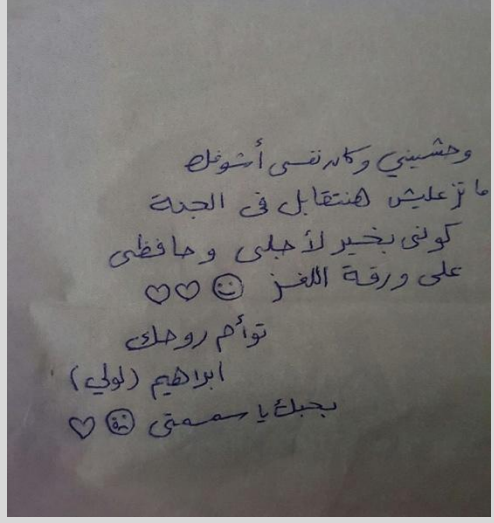 وحشتيني وكان نفسى أشوفك
ماتزعليش هنتقابل فى الجنة
كونى بخير لأجلى وحافظى
على ورقة اللغز
توأم روحك
ابراهيم (لولي)
بحبك يا سمسمتى